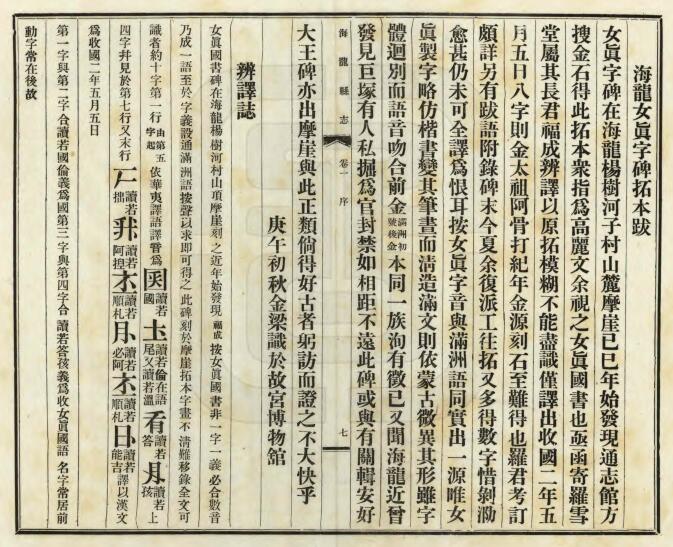 海龍女眞字碑拓本跋
女眞字碑在海龍楊樹河子村山麓摩崖己巳年始發現通志館方
搜金石得此拓本衆指爲高麗文余視之女眞國書也亟函寄羅雪
堂屬其長君福成辨譯以原拓模糊不能盡識僅譯出收國二年五
月五日八字則金太祖阿骨打紀年金源刻石至難得也羅君考訂
頗詳另有跋語附錄碑末今夏余復派工往拓又多得數字惜剝泐
愈甚仍未可全譯爲恨耳按女眞字音與滿洲語同實出一源唯女
眞製字略仿楷書變其筆畫而淸造滿文則依蒙古微異其形雖字
體迴別而語音吻合前金滿洲初號後金本同一族洵有徵已又聞海龍近曾
發見巨塚有人私掘爲官封禁如相距不遠此碑或與有關輯安好
海龍縣志 卷一 序 七
大王碑亦出摩崖與此正類倘得好古者躬訪而證之不大快乎
庚午初秋金梁識於故宮博物館
辨譯誌
女眞國書碑在海龍楊樹河村山項摩崖刻之近年始發現福成按女眞國書非一字一義必合數音
乃成一語至於字義設通滿洲語按聲以求即可得之此碑刻於摩崖拓本字畫不淸難移錄全文可
識者約十字第一行由第五字起依華夷譯語譯音爲讀若國讀若倫在語尾又讀若溫讀若答讀若孩上
四字幷見於第七行又末行讀若拙讀若阿揑讀若順札讀若必阿讀若順札讀若能吉譯以漢文
爲收國二年五月五日
第一字與第二字合讀若國倫義爲國第三字與第四字合讀若答孩義爲收女眞國語名字常居前
動字常在後故